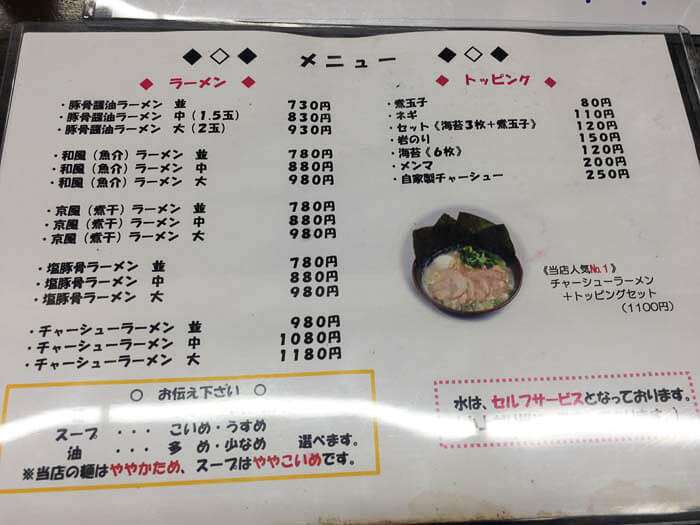 ◆ ◇ ◆ メニュー ◆ ◇ ◆
◆ ラーメン ◆
・豚骨醤油ラーメン 並 730円
・豚骨醤油ラーメン 中(1.5玉) 830円
・豚骨醤油ラーメン 大(2玉) 930円
・和風(魚介)ラーメン 並 780円
・和風(魚介)ラーメン 中 880円
・和風(魚介)ラーメン 大 980円
・京風(煮干)ラーメン 並 780円
・京風(煮干)ラーメン 中 880円
・京風(煮干)ラーメン 大 980円
・塩豚骨ラーメン 並 780円
・塩豚骨ラーメン 中 880円
・塩豚骨ラーメン 大 980円
・チャーシューラーメン 並 980円
・チャーシューラーメン 中 1080円
・チャーシューラーメン 大 1180円
○ お伝え下ざい ○
スープ ・・・ こいめ・うすめ
油 ・・・ 多め・少なめ 選べます。
※当店の麺はややかため、スープはややこいめです。
◆ トッピング ◆
・煮玉子 80円
・ネギ 110円
・セット《海苔3枚+煮玉子》 120円
・岩のり 150円
・海苔《6枚》 120円
・メンマ 200円
・自家製チャーシュー 250円
《当店人気No.1》
チャーシューラーメン
+トッピングセット
(1100円)
水は、セルフサービスとなっております。